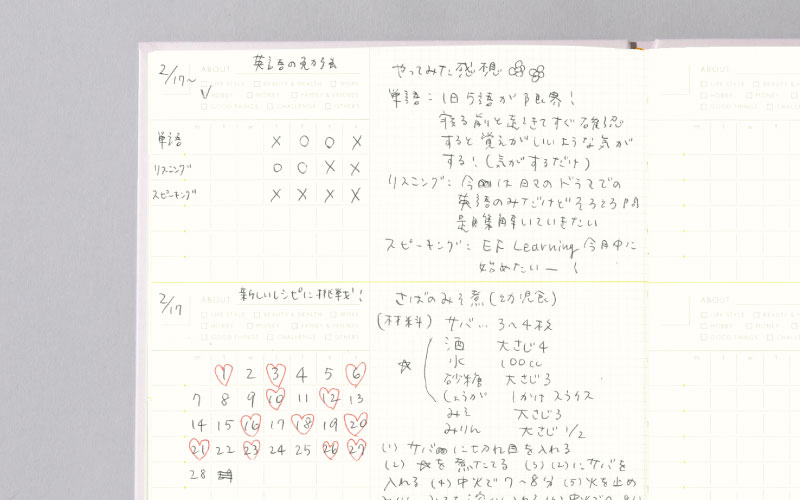 2/17~
ABOUT
英語の勉強
LIFE STYLE BEAUTY & HEALTH WORK
HOBBY MONEY FAMILY & FRIENDS
GOOD THINGS CHALLENGE OTHERS
単語 × ○ ○ ×
リスニング ○ ○ × ×
スピーキング × × × ×
やってみた感想
単語:1日5語が限界!
寝る前と起きてすぐ確認
すると覚えがいいような気が
する!(気がするだけ)
リスニング:今回は日々のドラマでの
英語のみだけどそろそろ問
題集解いていきたい
スピーキング:EF Learning 今月中に
始めたいー!
2/17
ABOUT
新しいレシピに挑戦!
LIFE STYLE BEAUTY & HEALTH WORK
HOBBY MONEY FAMILY & FRIENDS
GOOD THINGS CHALLENGE OTHERS
1 2 3 4 5 6
7 8 9 10 11 12 13
14 15 16 17 18 19 20
21 22 23 24 25 26 27
28
さばのみそ煮(幼児食)
(材料) サバ… 3~4枚
☆ 酒 大さじ4
水 100cc
砂糖 大さじ3
しょうが 1かけスライス
みそ 大さじ3
みりん 大さじ1/2
(1) サバに切れ目を入れる
(2) ☆を煮たてる (3) (2)にサバを
入れる (4) 中火で7~8分 (5) 火を止め